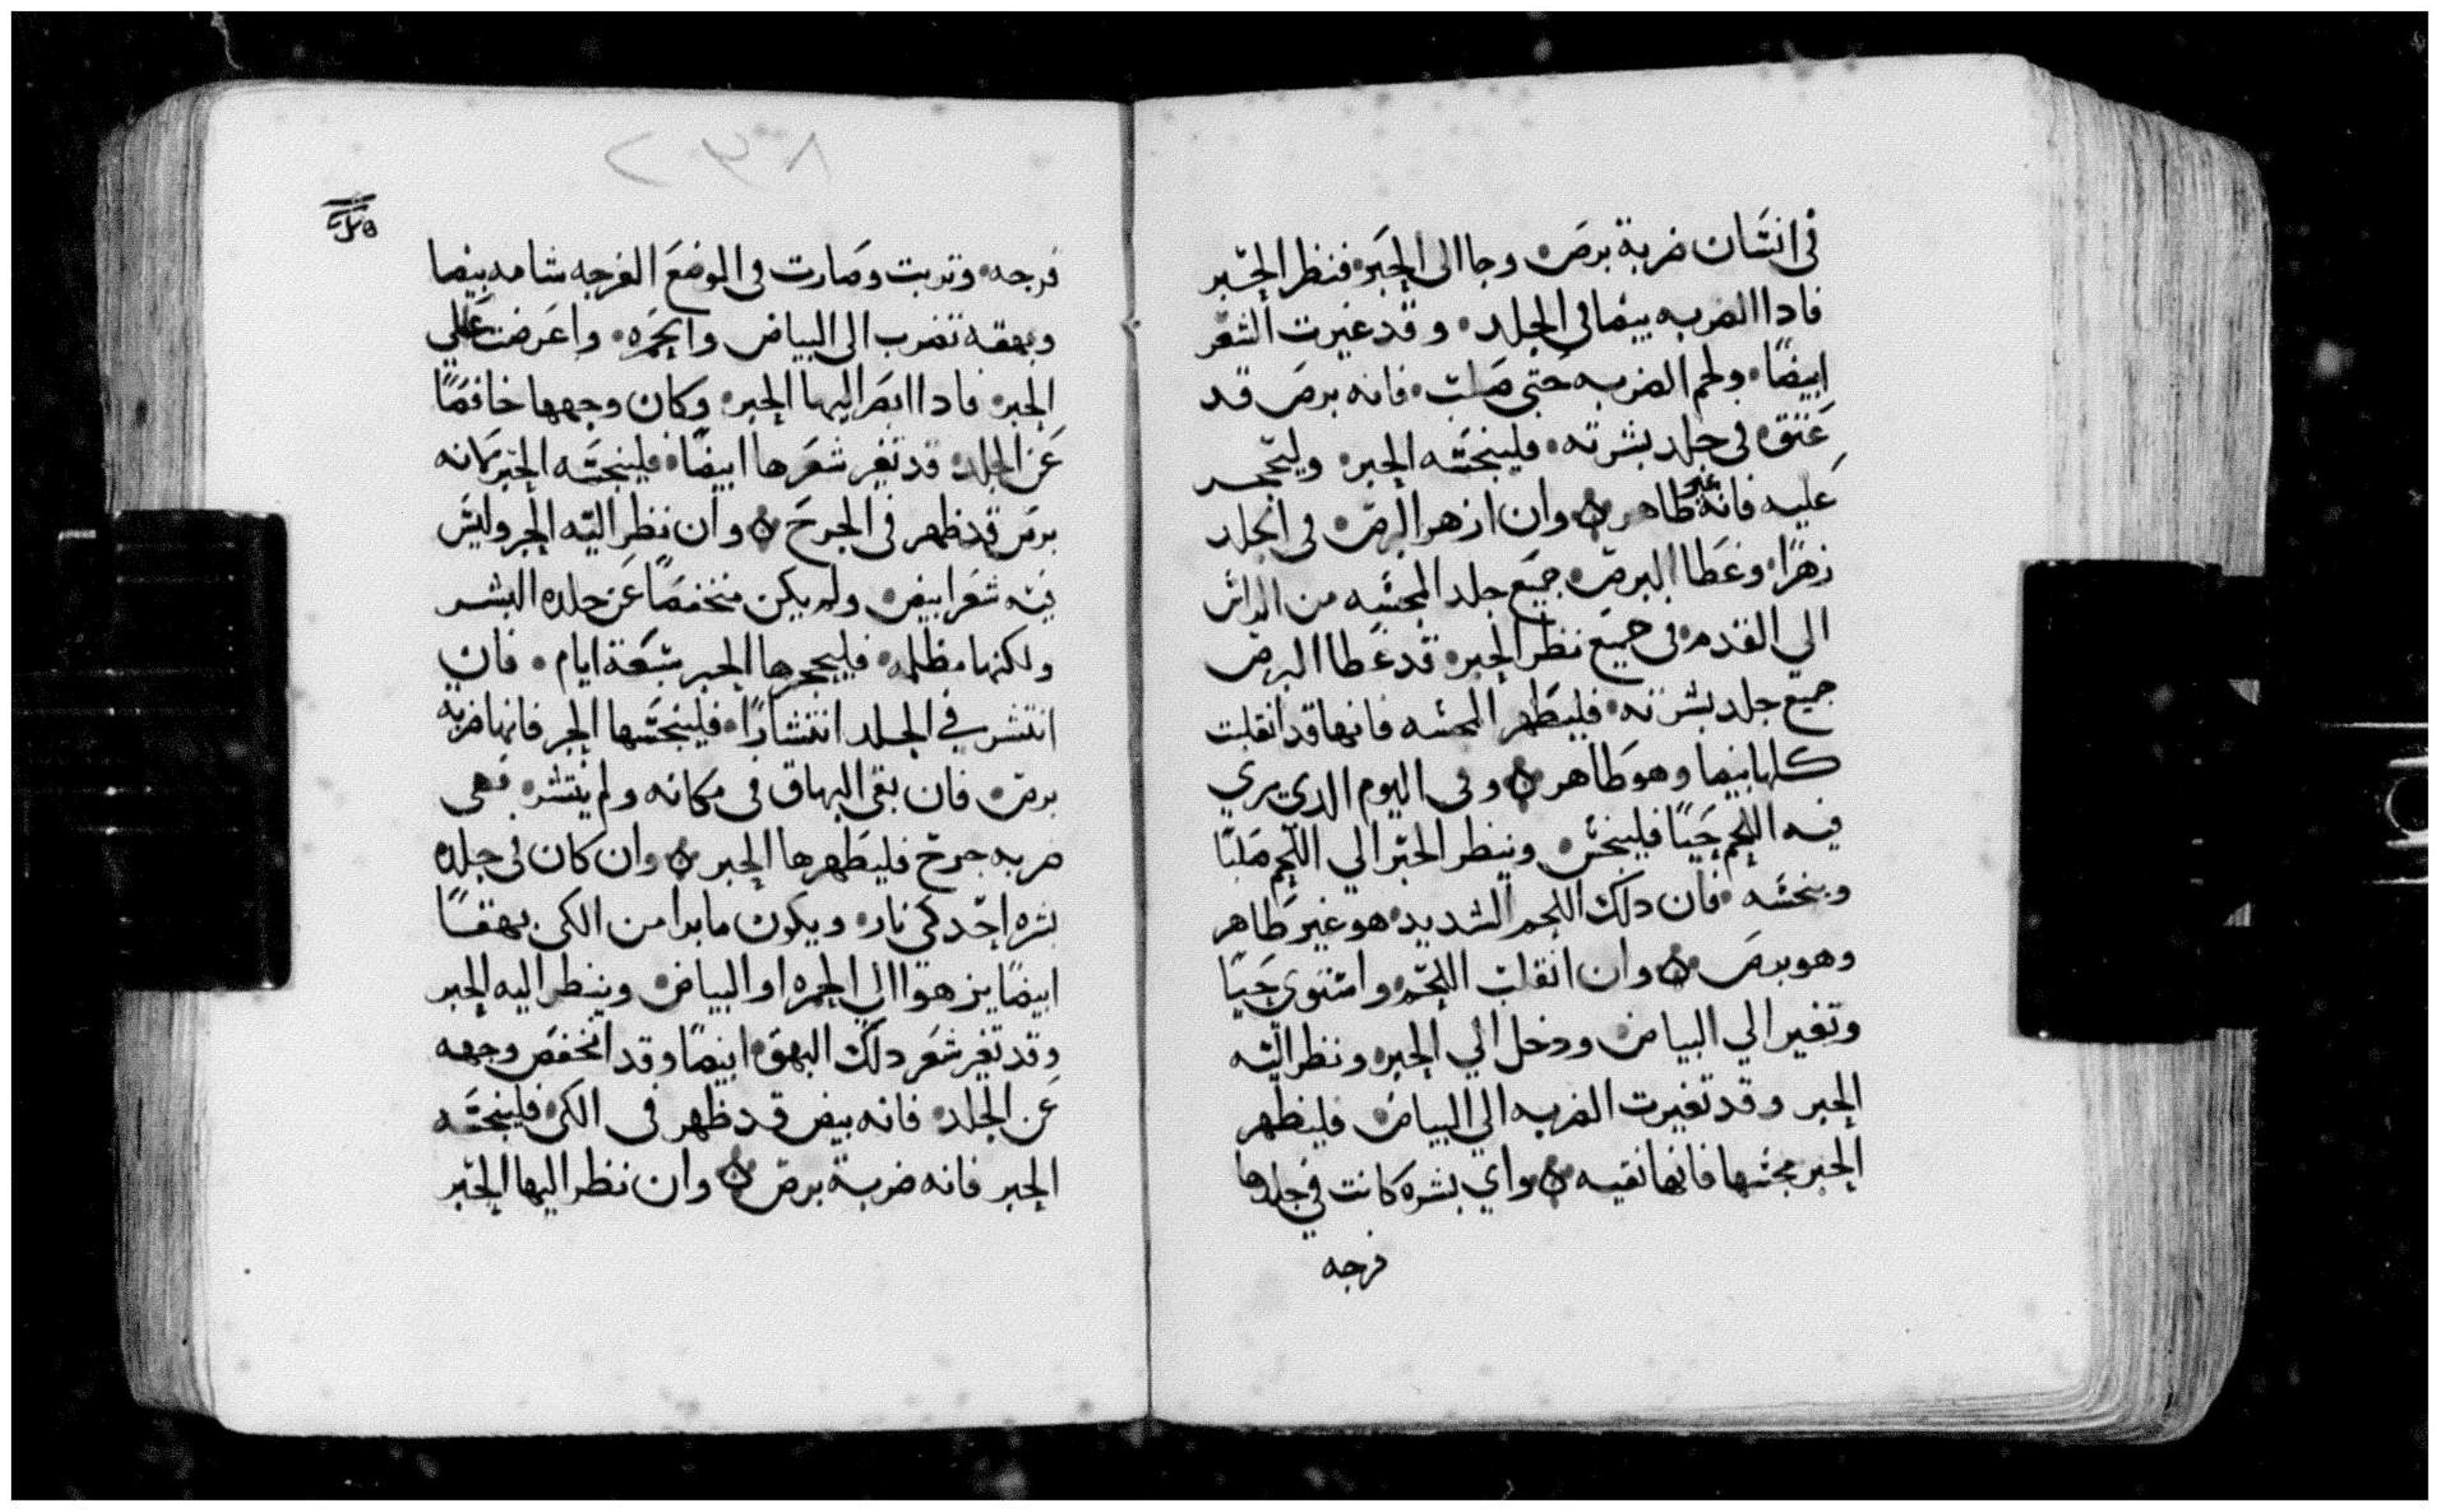 في انسان ضربة برص وجا الى الحبر فنظر الحبر
فادا الضربه بيضا في الجلد وقد غيرت الشعر
ابيضا ولحم الضربه حتى صلب فانه برص قد
عتق في جلد بشرته فلينجسه الحبر وليحجر
عليه فانه غير طاهر وان ازهر البرص في الجلد
زهرا وغطا البرص جميع جلد المجسه من الراس
الي القدم في جميع نظر الحبر قد غطا البرص
جميع جلد بشرته فليطهر المجسه فانها قد انقلبت
كلها بيضا وهو طاهر وفي اليوم الدي يري
فيه اللحم حيا فلينجس وينظر الحبر الي اللحم صلبا
وينجسه فان دلك اللحم الشديد هو غير طاهر
وهو برص وان انقلب اللحم واستوي حيا
وتغير الي البياض ودخل الي الحبر ونظر اليه
الحبر وقد تغيرت الضربه الي البياض فليطهر
الحبر مجسها فانها نقيه واي بشره كانت في جلدها
فرجه
٢٣٨
فرجه وتربت وصارت في الموضع الفرجه شامه بيضا
وبهقه تضرب الى البياض والحمره واعرضت علي
الحبر فادا ابصر اليها الحبر وكان وجهها خافضا
عن الجلد قد تغير شعرها ابيضا فلينجسه الحبر كانه
برص قد ظهر في الجرح وان نظر اليه الحبر وليس
فيه شعر ابيض ولم يكن منخفضا عن جلده البشر
ولكنها مظلمه فليحجرها الحبر سبعة ايام فان
انتشر في الجلد انتشارا فلينجسها الحبر فانها ضربة
برص فان بقي البهاق في مكانه ولم ينتشر فهي
ضربه جرح فليطهرها الحبر وان كان في جلده
بشره احد كي نار ويكون ما برا من الكي بهقا
ابيضا يزهوا الي الحمره او البياض وينظر اليه الحبر
وقد تغير شعر دلك البهق ابيضا وقد انخفض وجهه
عن الجلد فانه بيض قد ظهر في الكي فلينجسه
الحبر فانه ضربة برص وان نظر اليها الحبر